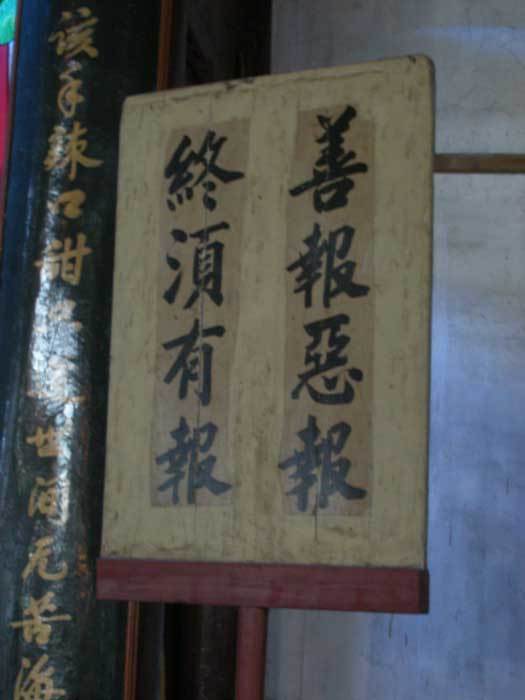 善報惡報
終須有報
該手辣口甜
世间无苦海